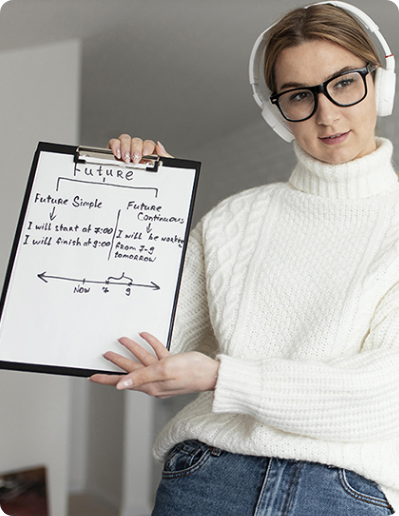 Future
Future Simple
I will start at 7:00
I will finish at 9:00
Future
Continuous
I will be working
from 7-9
tomorrow
Now 7 9